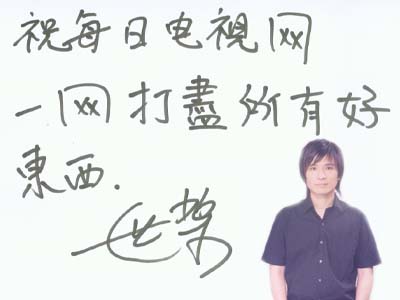 祝每日电視网
一网打盡所有好
東西.